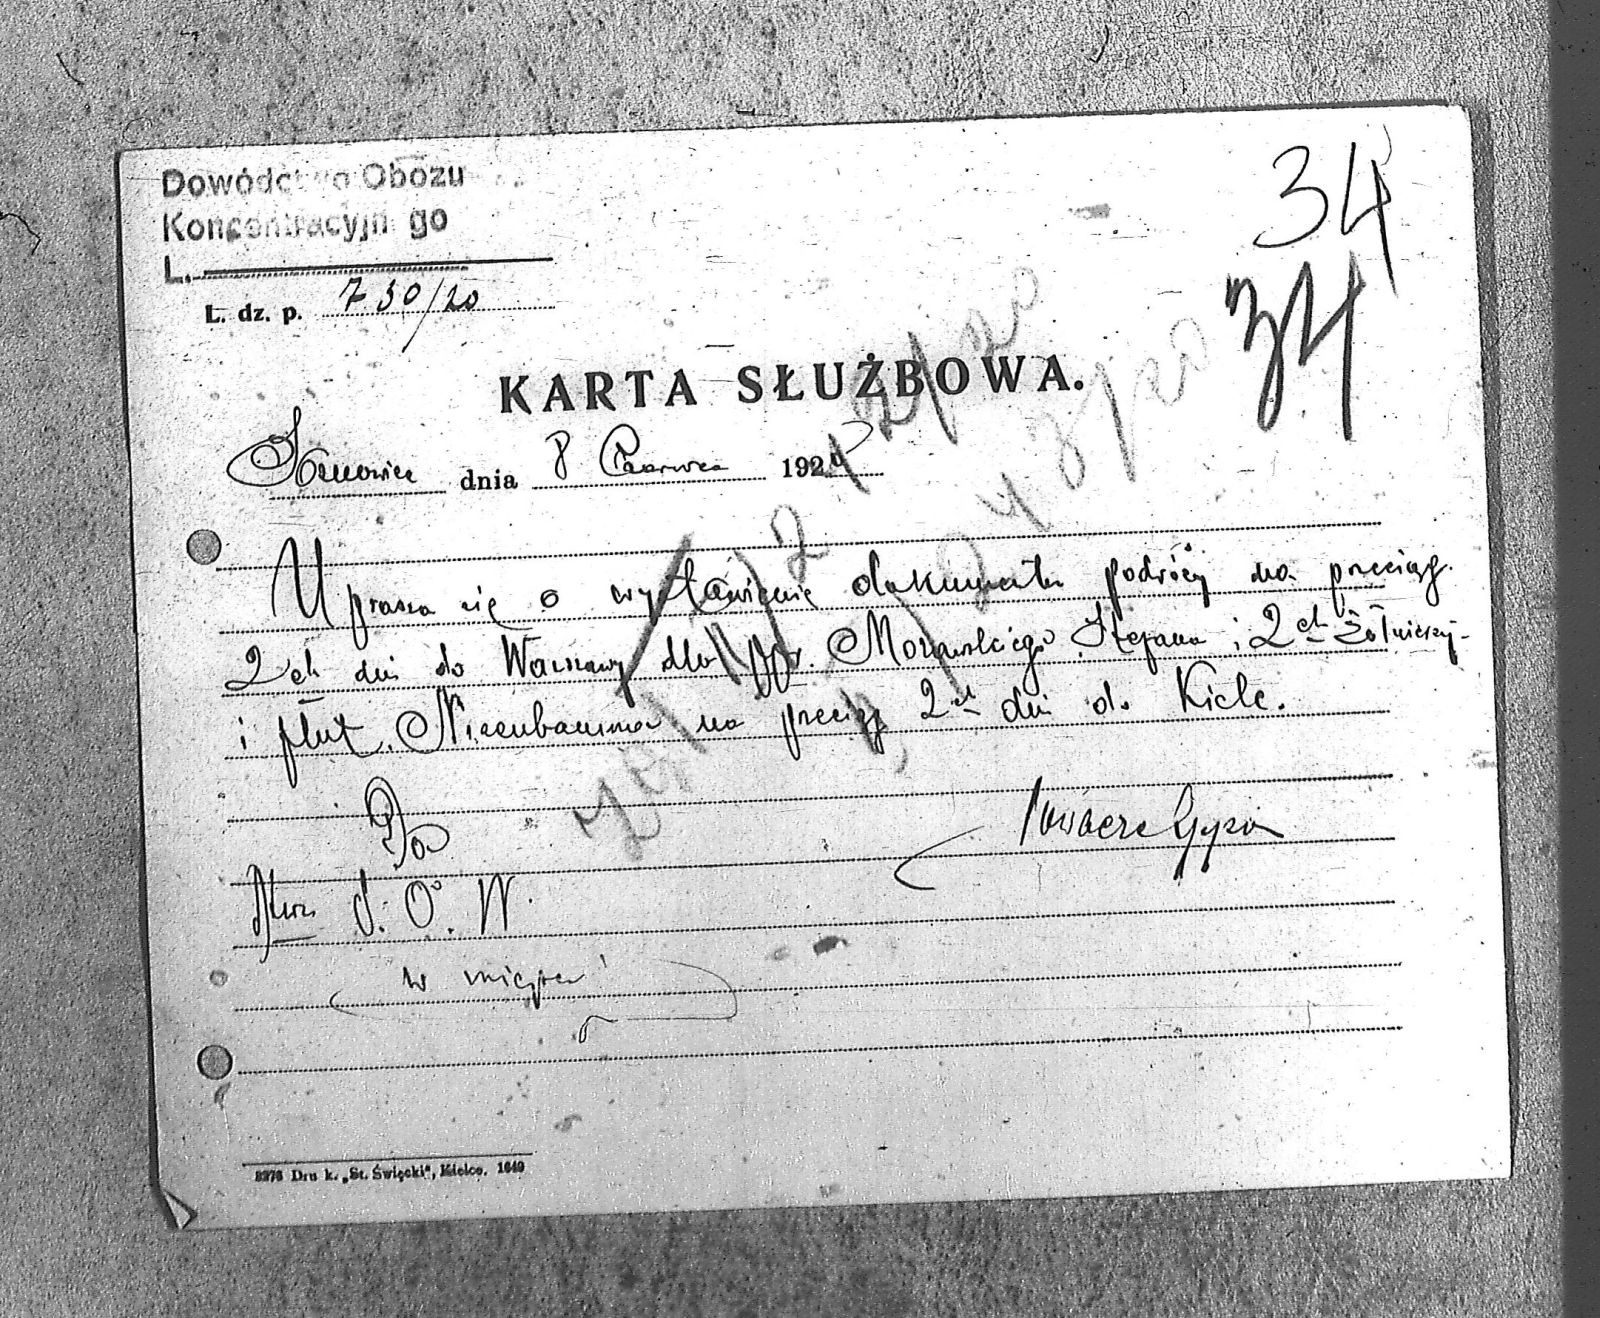 Dowództwo Obozu
Koncentracyjnego
L.
34
34
L. dz. p. 730/20
KARTA SŁUŻBOWA.
dnia 8 Czerwca 192
Uprasza się o wystawienie dokumentu podróży na przeciąg
2ch dni do Warszawy dla ppr. Morawskiego Stefana i 2ch żołnierzy
i plut. Nisenbauma na przeciąg 2ch dni do Kielc.
Do
O. W.
w miejscu
8276 Druk. „St. Święcki", Kielce. 1649